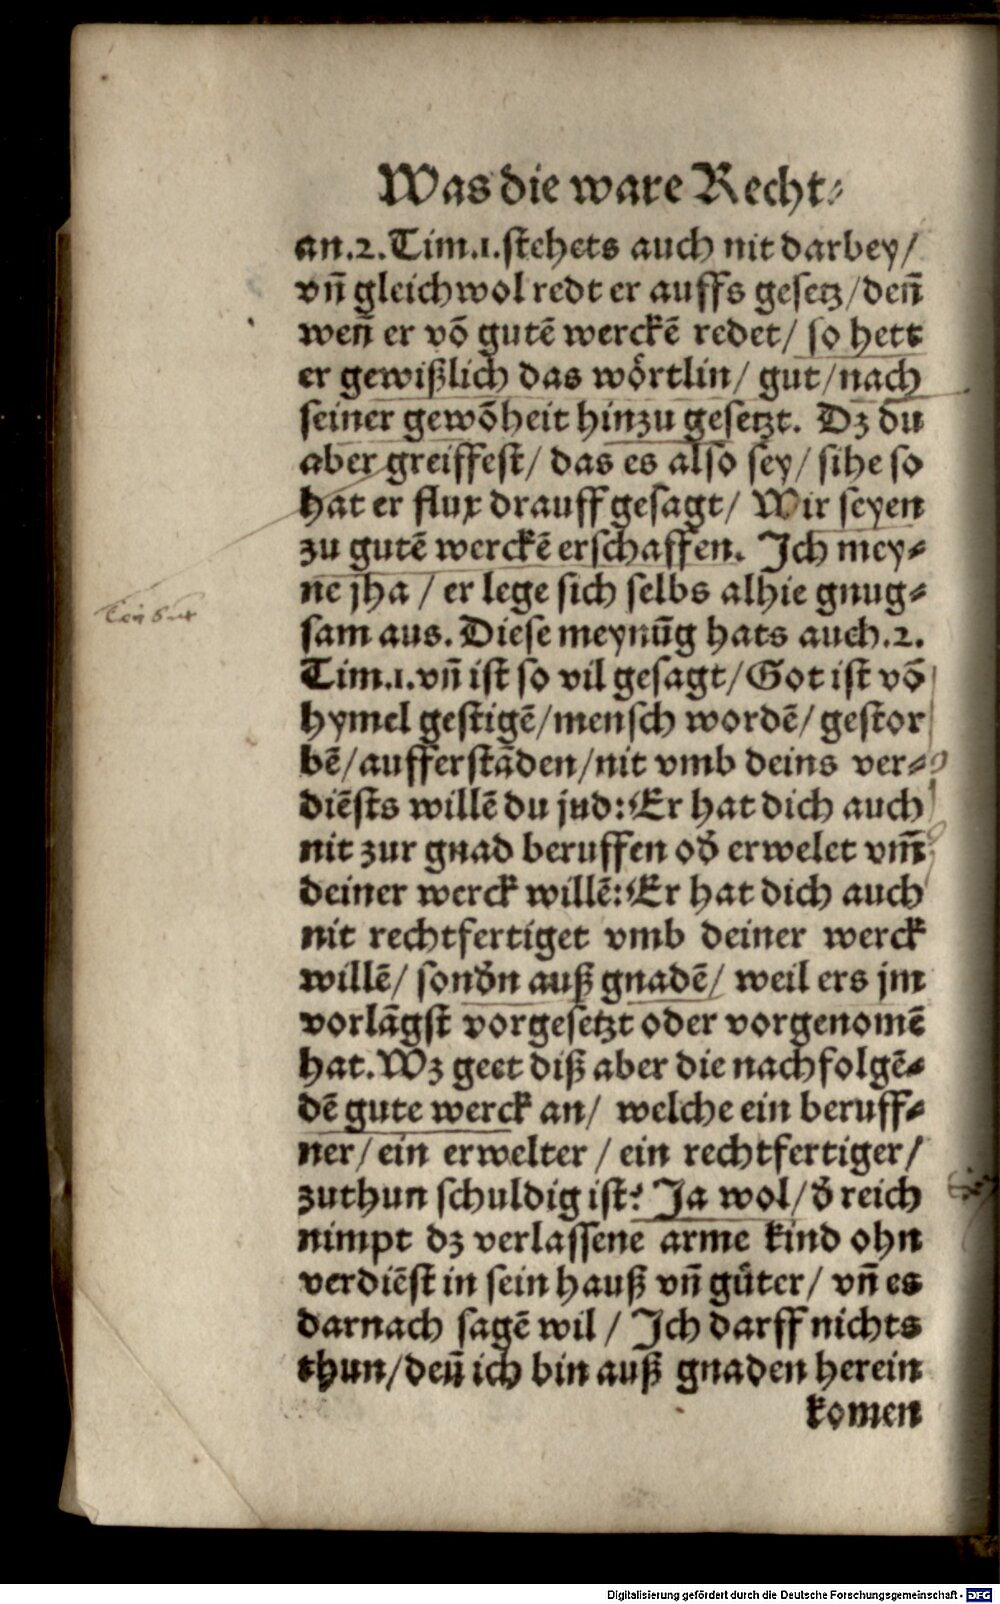 Was die ware Recht⸗
an.2.Tim.1.stehets auch nit darbey/
vn̄ gleichwol redt er auffs gesetz/den̄
wen̄ er vō gutē werckē redet/ so hett
er gewißlich das wörtlin/ gut/nach
seiner gewōheit hinzu gesetzt. Dz du
aber greiffest/ das es also sey/ sihe so
hat er flux drauff gesagt/ Wir seyen
zu gutē werckē erschaffen. Ich mey⸗
ne jha / er lege sich selbs alhie gnug⸗
sam aus. Diese meynūg hats auch.2.
Tim.1.vn̄ ist so vil gesagt/Got ist vō
hymel gestigē/mensch wordē/ gestor
bē/aufferstāden/nit vmb deins ver⸗
diēsts willē du jud: Er hat dich auch
nit zur gnad beruffen od̕ erwelet vm̄
deiner werck willē: Er hat dich auch
nit rechtfertiget vmb deiner werck
willē/ sond̕n auß gnadē/ weil ers jm
vorlāgst vorgesetzt oder vorgenomē
hat. Wz geet diß aber die nachfolgē⸗
dē gute werck an/ welche ein beruff⸗
ner/ein erwelter / ein rechtfertiger/
zuthun schuldig ist? Ja wol/d̕ reich
nimpt dz verlassene arme kind ohn
verdiēst in sein hauß vn̄ güter/ vn̄ es
darnach sagē wil / Ich darff nichts
thun/den̄ ich bin auß gnaden herein
komen
Digitalisierung gefördert durch die Deutsche Forschungsgemeinschaft - DFG